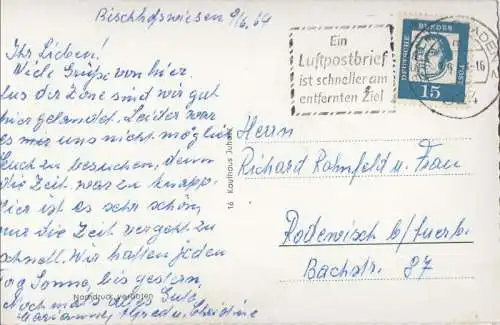 Bischofswiesen 9/6.64
Ihr Lieben!
Viele Grüße von hier.
Aus der Zone sind wir gut
hier gelandet. Leider war
es mir uns nicht möglich
Euch zu besuchen, denn
die Zeit war zu knapp.
Hier ist es sehr schön,
nur die Zeit vergeht zu
schnell. Wir hatten jeden
Tag Sonne, bis gestern.
Nochmals alles Gute
Marianne, Alfred u. Christine
Nachdruck verboten
16 Kaufhaus
Ein
Luftpostbrief
ist schneller am
entfernten Ziel
DEUTSCHE
BUNDES
15
16
Herrn
Richard Rahnfeld u. Frau
Rodewisch b/Auerb.
Bachstr. 87